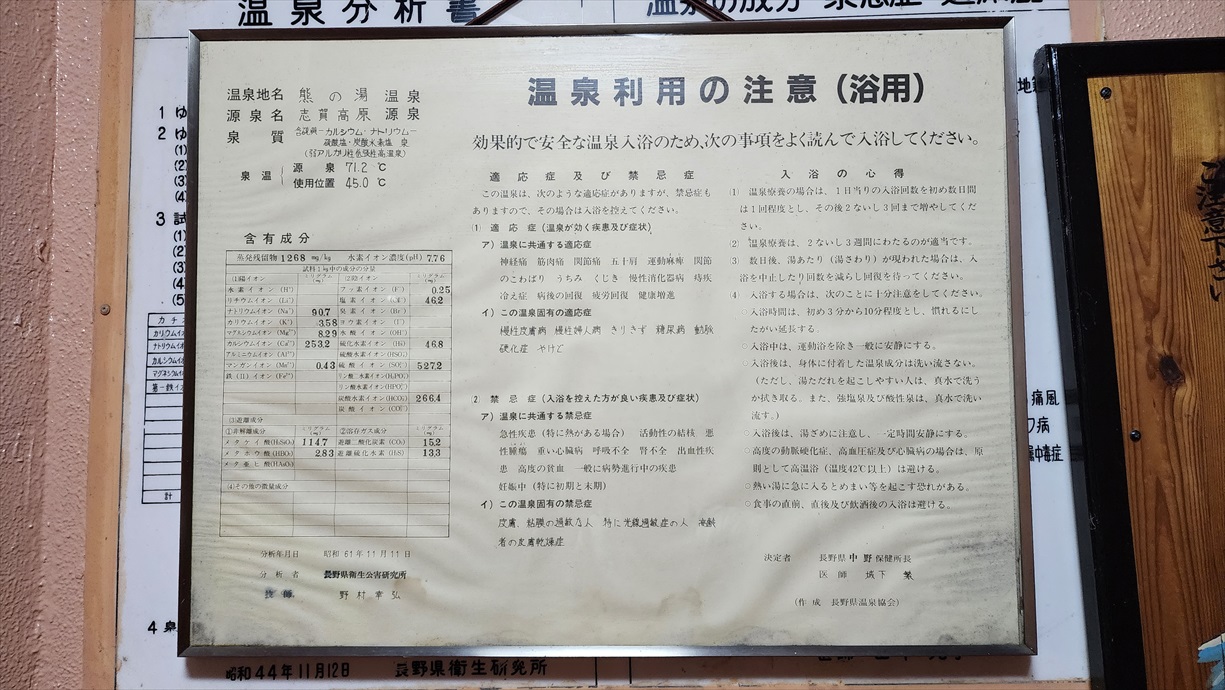 温泉分析書
温泉地名 熊の湯 温泉
源泉名 志賀高原 源泉
泉質 含硫黄-カルシウム・ナトリウム-
硫酸塩・炭酸水素塩 泉
(弱アルカリ性低張性高温泉)
泉温 源泉 71.2 ℃
使用位置 45.0 ℃
含有成分
蒸発残留物 1268 mg/kg 水素イオン濃度(pH) 7.76
試料1kg中の成分の分量
(1)陽イオン ミリグラム(mg) (2)陰イオン ミリグラム(mg)
水素イオン(H⁺) フッ素イオン(F⁻) 0.25
リチウムイオン(Li⁺) 塩素イオン(Cl⁻) 46.2
ナトリウムイオン(Na⁺) 90.7 臭素イオン(Br⁻)
カリウムイオン(K⁺) 3.58 ヨウ素イオン(I⁻)
マグネシウムイオン(Mg²⁺) 8.29 水酸イオン(OH⁻)
カルシウムイオン(Ca²⁺) 253.2 硫化水素イオン(HS⁻) 46.8
アルミニウムイオン(Al³⁺) 硫酸水素イオン(HSO₄⁻)
マンガンイオン(Mn²⁺) 0.43 硫酸イオン(SO₄²⁻) 527.2
鉄(II)イオン(Fe²⁺) リン酸二水素イオン(H₂PO₄⁻)
リン酸水素イオン(HPO₄²⁻)
炭酸水素イオン(HCO₃⁻) 266.4
炭酸イオン(CO₃²⁻)
(3)遊離成分
①非解離成分 ミリグラム(mg) ②溶存ガス成分 ミリグラム(mg)
メタケイ酸(H₂SiO₃) 114.7 遊離二酸化炭素(CO₂) 15.2
メタホウ酸(HBO₂) 28.3 遊離硫化水素(H₂S) 13.3
メタ亜ヒ酸(HAsO₂)
(4)その他の微量成分
分析年月日 昭和61年11月11日
分析者 長野県衛生公害研究所
技師 野村幸弘
温泉利用の注意(浴用)
効果的で安全な温泉入浴のため、次の事項をよく読んで入浴してください。
適応症及び禁忌症
この温泉は、次のような適応症がありますが、禁忌症も
ありますので、その場合は入浴を控えてください。
(1) 適応症(温泉が効く疾患及び症状)
ア) 温泉に共通する適応症
神経痛 筋肉痛 関節痛 五十肩 運動麻痺 関節
のこわばり うちみ くじき 慢性消化器病 痔疾
冷え症 病後の回復 疲労回復 健康増進
イ) この温泉固有の適応症
慢性皮膚病 慢性婦人病 きりきず 糖尿病 動脈
硬化症 やけど
2) 禁忌症(入浴を控えた方が良い疾患及び症状)
ア) 温泉に共通する禁忌症
急性疾患(特に熱がある場合) 活動性の結核 悪
性腫瘍 重い心臓病 呼吸不全 腎不全 出血性疾
患 高度の貧血 一般に病勢進行中の疾患
妊娠中(特に初期と末期)
イ) この温泉固有の禁忌症
皮膚、粘膜の過敏な人 特に光線過敏症の人 高齢
者の皮膚乾燥症
入浴の心得
(1) 温泉療養の場合は、1日当りの入浴回数を初め数日間
は1回程度とし、その後2ないし3回まで増やしてくだ
さい。
(2) 温泉療養は、2ないし3週間にわたるのが適当です。
(3) 数日後、湯あたり(湯さわり)が現われた場合は、入
浴を中止したり回数を減らし回復を待ってください。
(4) 入浴する場合は、次のことに十分注意をしてください。
○入浴時間は、初め3分から10分程度とし、慣れるにし
たがい延長する。
○入浴中は、運動浴を除き一般に安静にする。
○入浴後は、身体に付着した温泉成分は洗い流さない。
(ただし、湯ただれを起こしやすい人は、真水で洗う
か拭き取る。また、強塩泉及び酸性泉は、真水で洗い
流す。)
○入浴後は、湯ざめに注意し、一定時間安静にする。
○高度の動脈硬化症、高血圧症及び心臓病の場合は、原
則として高温浴(温度42℃以上)は避ける。
○熱い湯に急に入るとめまい等を起こす恐れがある。
○食事の直前、直後及び飲酒後の入浴は避ける。
決定者 長野県中野保健所長
医師 城下 繁
(作成 長野県温泉協会)
昭和44年11月12日 長野県衛生研究所
痛風